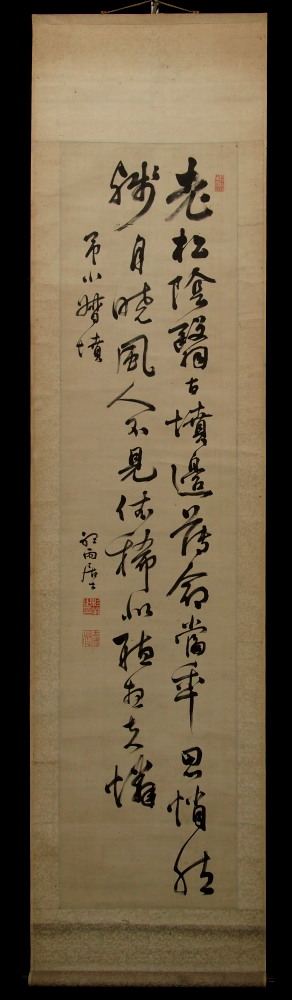 老松陰翳古墳邊薄命當年思悄然
殘月曉風人不見依稀似聽想夫憐
弔小督墳
雨居士